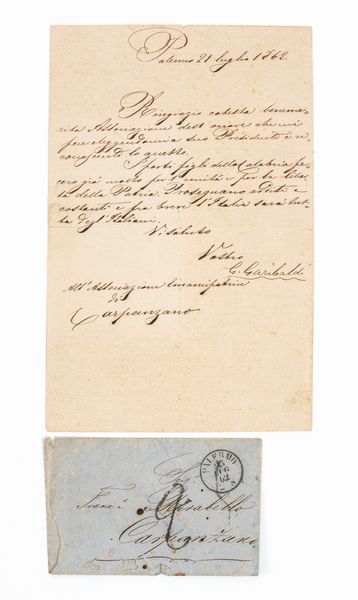 Palermo 21 luglio 1862
Ringrazio codesta beneme-
rita Associazione dell'onore che mi
fece eleggendomi a suo Presidente e ri-
conoscendo lo questo
I forti figli della Calabria fe-
cero già molto per l'unità e per la libertà
della Patria. Proseguano arditi e
costanti e fra breve l'Italia sarà tut-
ta degl'Italiani.
Vi saluto
Vostro
G. Garibaldi
All'Associazione Emancipatrice
di
Carpanzano
PALERMO
62
Franc
Carpanzano